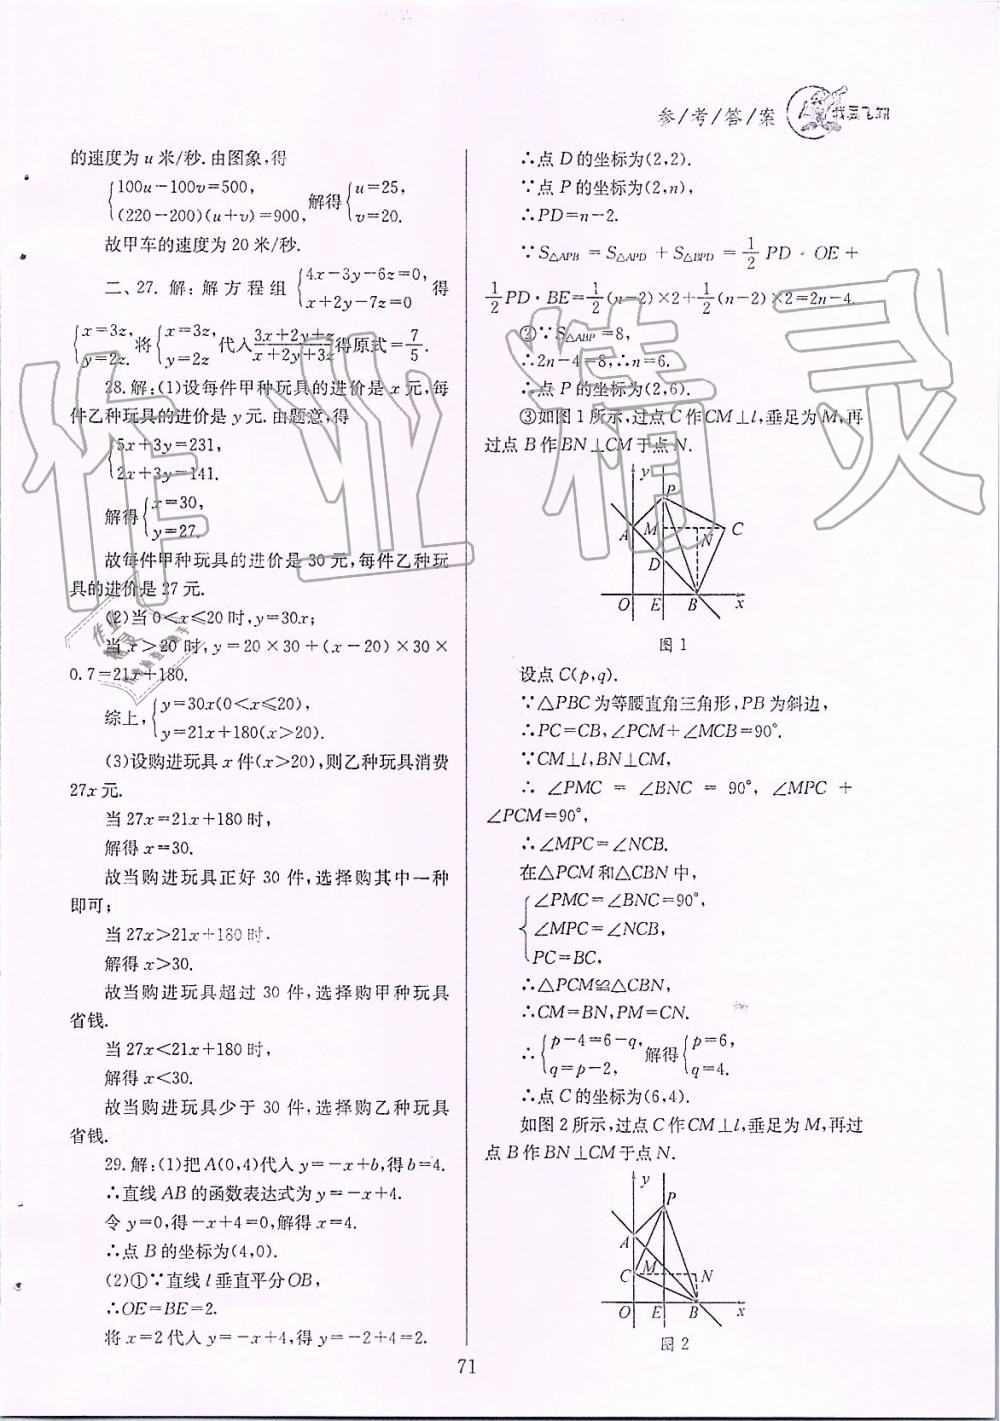 参/考/答/案
我要飞翔
的速度为u米/秒.由图象,得
{100u-100v=500,
(220-200)(u+v)=900,
解得{u=25,
v=20.
故甲车的速度为20米/秒.
二、27. 解:解方程组{4x-3y-6z=0,
x+2y-7z=0
得
{x=3z,
y=2z.
将{x=3z,
y=2z
代入(3x+2y+z)/(x+2y+3z)得原式=7/5.
28.解:(1)设每件甲种玩具的进价是x元,每
件乙种玩具的进价是y元.由题意,得
{5x+3y=231,
2x+3y=141.
解得{x=30,
y=27.
故每件甲种玩具的进价是30元,每件乙种玩
具的进价是27元.
(2)当0<x≤20时,y=30x;
当x>20时,y=20×30+(x-20)×30×
0.7=21x+180.
综上,{y=30x(0<x≤20),
y=21x+180(x>20).
(3)设购进玩具x件(x>20),则乙种玩具消费
27x元.
当27x=21x+180时,
解得x=30.
故当购进玩具正好30件,选择购其中一种
即可;
当27x>21x+180时.
解得x>30.
故当购进玩具超过30件,选择购甲种玩具
省钱.
当27x<21x+180时,
解得x<30.
故当购进玩具少于30件,选择购乙种玩具
省钱.
29.解:(1)把A(0,4)代入y=-x+b,得b=4.
∴直线AB的函数表达式为y=-x+4.
令y=0,得-x+4=0,解得x=4.
∴点B的坐标为(4,0).
(2)①∵直线l垂直平分OB,
∴OE=BE=2.
将x=2代入y=-x+4,得y=-2+4=2.
∴点D的坐标为(2,2).
∵点P的坐标为(2,n),
∴PD=n-2.
∵S△APB=S△APD+S△BPD=1/2 PD·OE+
1/2 PD·BE=1/2(n-2)×2+1/2(n-2)×2=2n-4.
②∵S△ABP=8,
∴2n-4=8,∴n=6.
∴点P的坐标为(2,6).
③如图1所示,过点C作CM⊥l,垂足为M,再
过点B作BN⊥CM于点N.
y
P
A
M
N
C
D
O
E
B
x
图1
设点C(p,q).
∵△PBC为等腰直角三角形,PB为斜边,
∴PC=CB,∠PCM+∠MCB=90°.
∵CM⊥l,BN⊥CM,
∴∠PMC=∠BNC=90°,∠MPC+
∠PCM=90°,
∴∠MPC=∠NCB.
在△PCM和△CBN中,
{∠PMC=∠BNC=90°,
∠MPC=∠NCB,
PC=BC,
∴△PCM≌△CBN,
∴CM=BN,PM=CN.
∴{p-4=6-q,
q=p-2,
解得{p=6,
q=4.
∴点C的坐标为(6,4).
如图2所示,过点C作CM⊥l,垂足为M,再过
点B作BN⊥CM于点N.
y
P
A
C
M
N
O
E
B
x
图2
71
作业精灵
作业
精灵